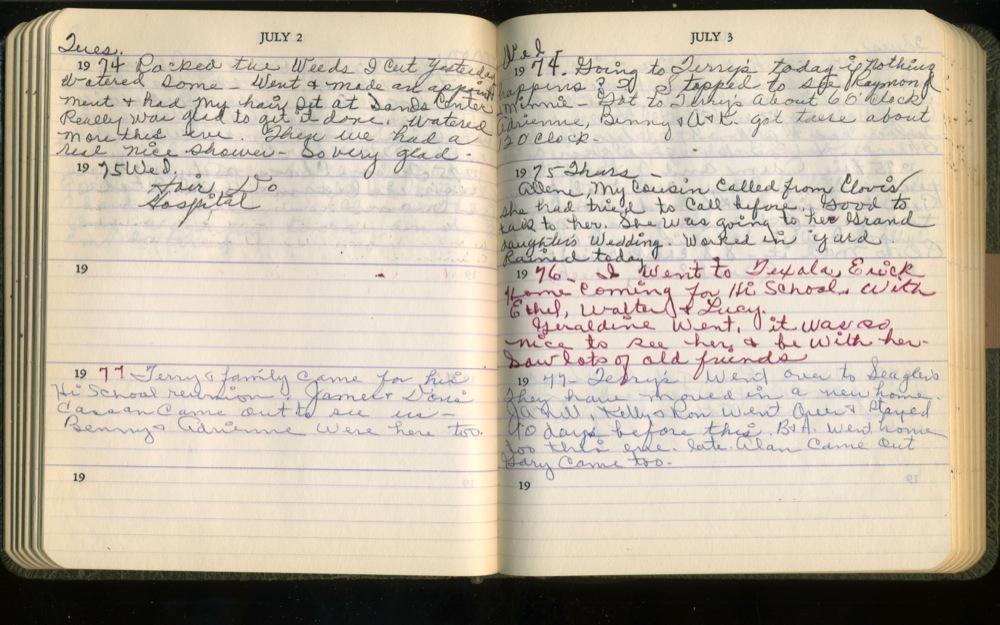 JULY 2
Tues.
1974 Racked the Weeds I Cut Yesterday
Watered Some - Went & made an appoint
ment & had my hair fit at Sands Center
Really was glad to get it done. Watered
more this eve. Then we had a
real nice shower - So very glad.
1975 Wed.
Hair Do
Hospital
19
1977 Terry & family came for his
Hi School reunion. James & Doris
Cassan came out to see us -
Benny & Adrienne were here too.
19
JULY 3
Wed
1974. Going to Terry's today if nothing
happens. I stopped to see Raymond
Minnie - Got to Terry's about 6 O'clock
Adrienne, Benny & A & K. got there about
12 O Clock -
1975 Thurs -
Allene, My Cousin Called from Clovis
she had tried to call before. Good to
talk to her. She was going to her Grand
daughters Wedding. Worked in yard
Rained today
1976 - I went to Texola, Erick
Home Coming for Hi School. With
Ethel, Walter & Lucy.
Geraldine Went, it was so
nice to see her, & be with her.
Saw lots of old friends
1977 - Terry's Went over to Seagler's
They have moved in a new home.
Kelly & Ron Went Over & Stayed
10 days before this. B & A. Went home
too this eve. late. Alan Came Out
Gary Came too.
19